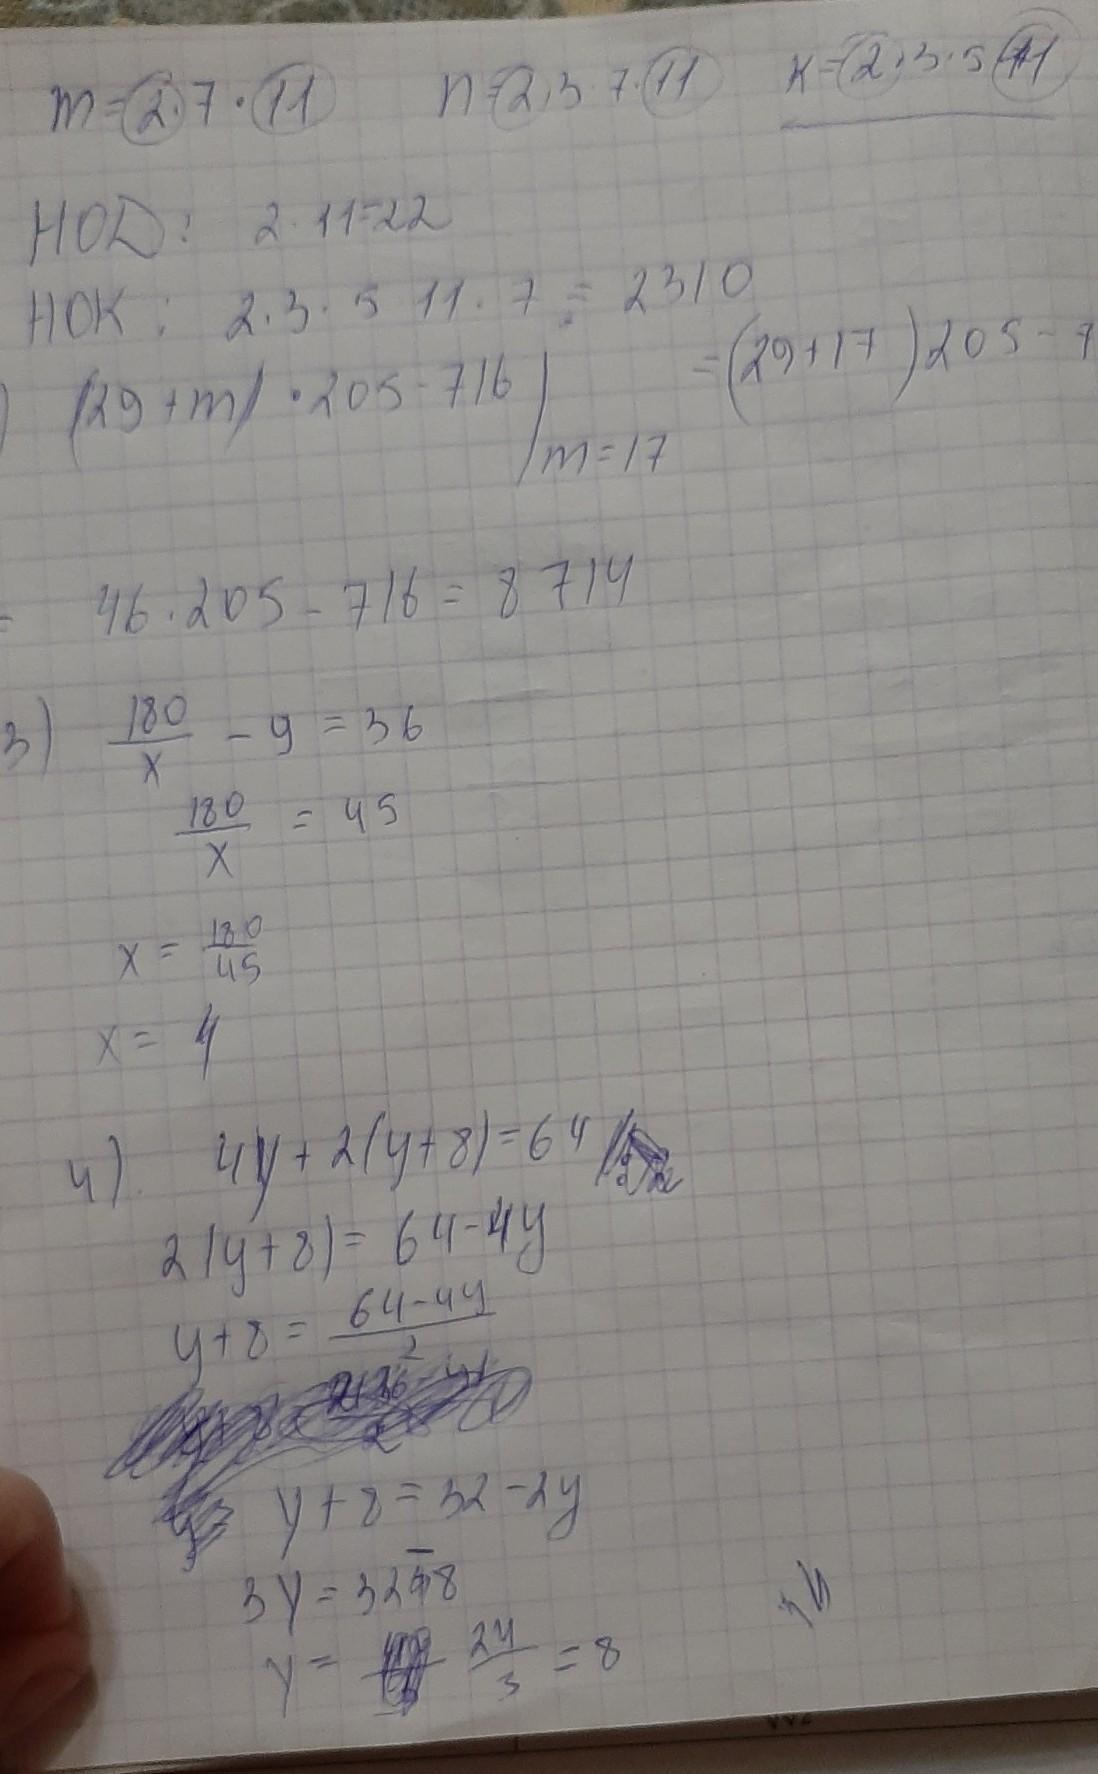 m=2·7·11 n=2·3·7·11 k=2·3·5·11
НОД: 2·11=22
НОК: 2·3·5 11·7 = 2310
) (29+m)·205-716| m=17 =(29+17)205-7
= 46·205-716=8714
3) 180/x - 9 = 36
180/x = 45
x = 180/45
x = 4
4) 4y+2(y+8)=64
2(y+8)= 64-4y
y+8= 64-4y/2
y+8=32-2y
3y=32-8
y= 24/3 =8